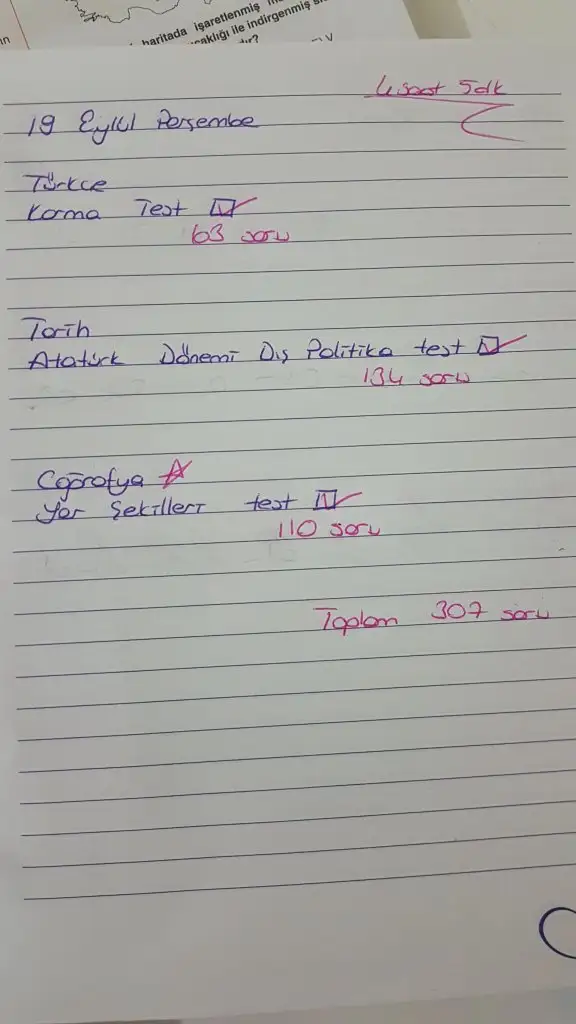 haritada işaretlenmiş
ile indirgenmiş
4 saat 5 dk
19 Eylül Perşembe
Türkçe
Karma Test
63 soru
Tarih
Atatürk Dönemi Dış Politika test
134 soru
Coğrafya
Yer Şekilleri test
110 soru
Toplam 307 soru